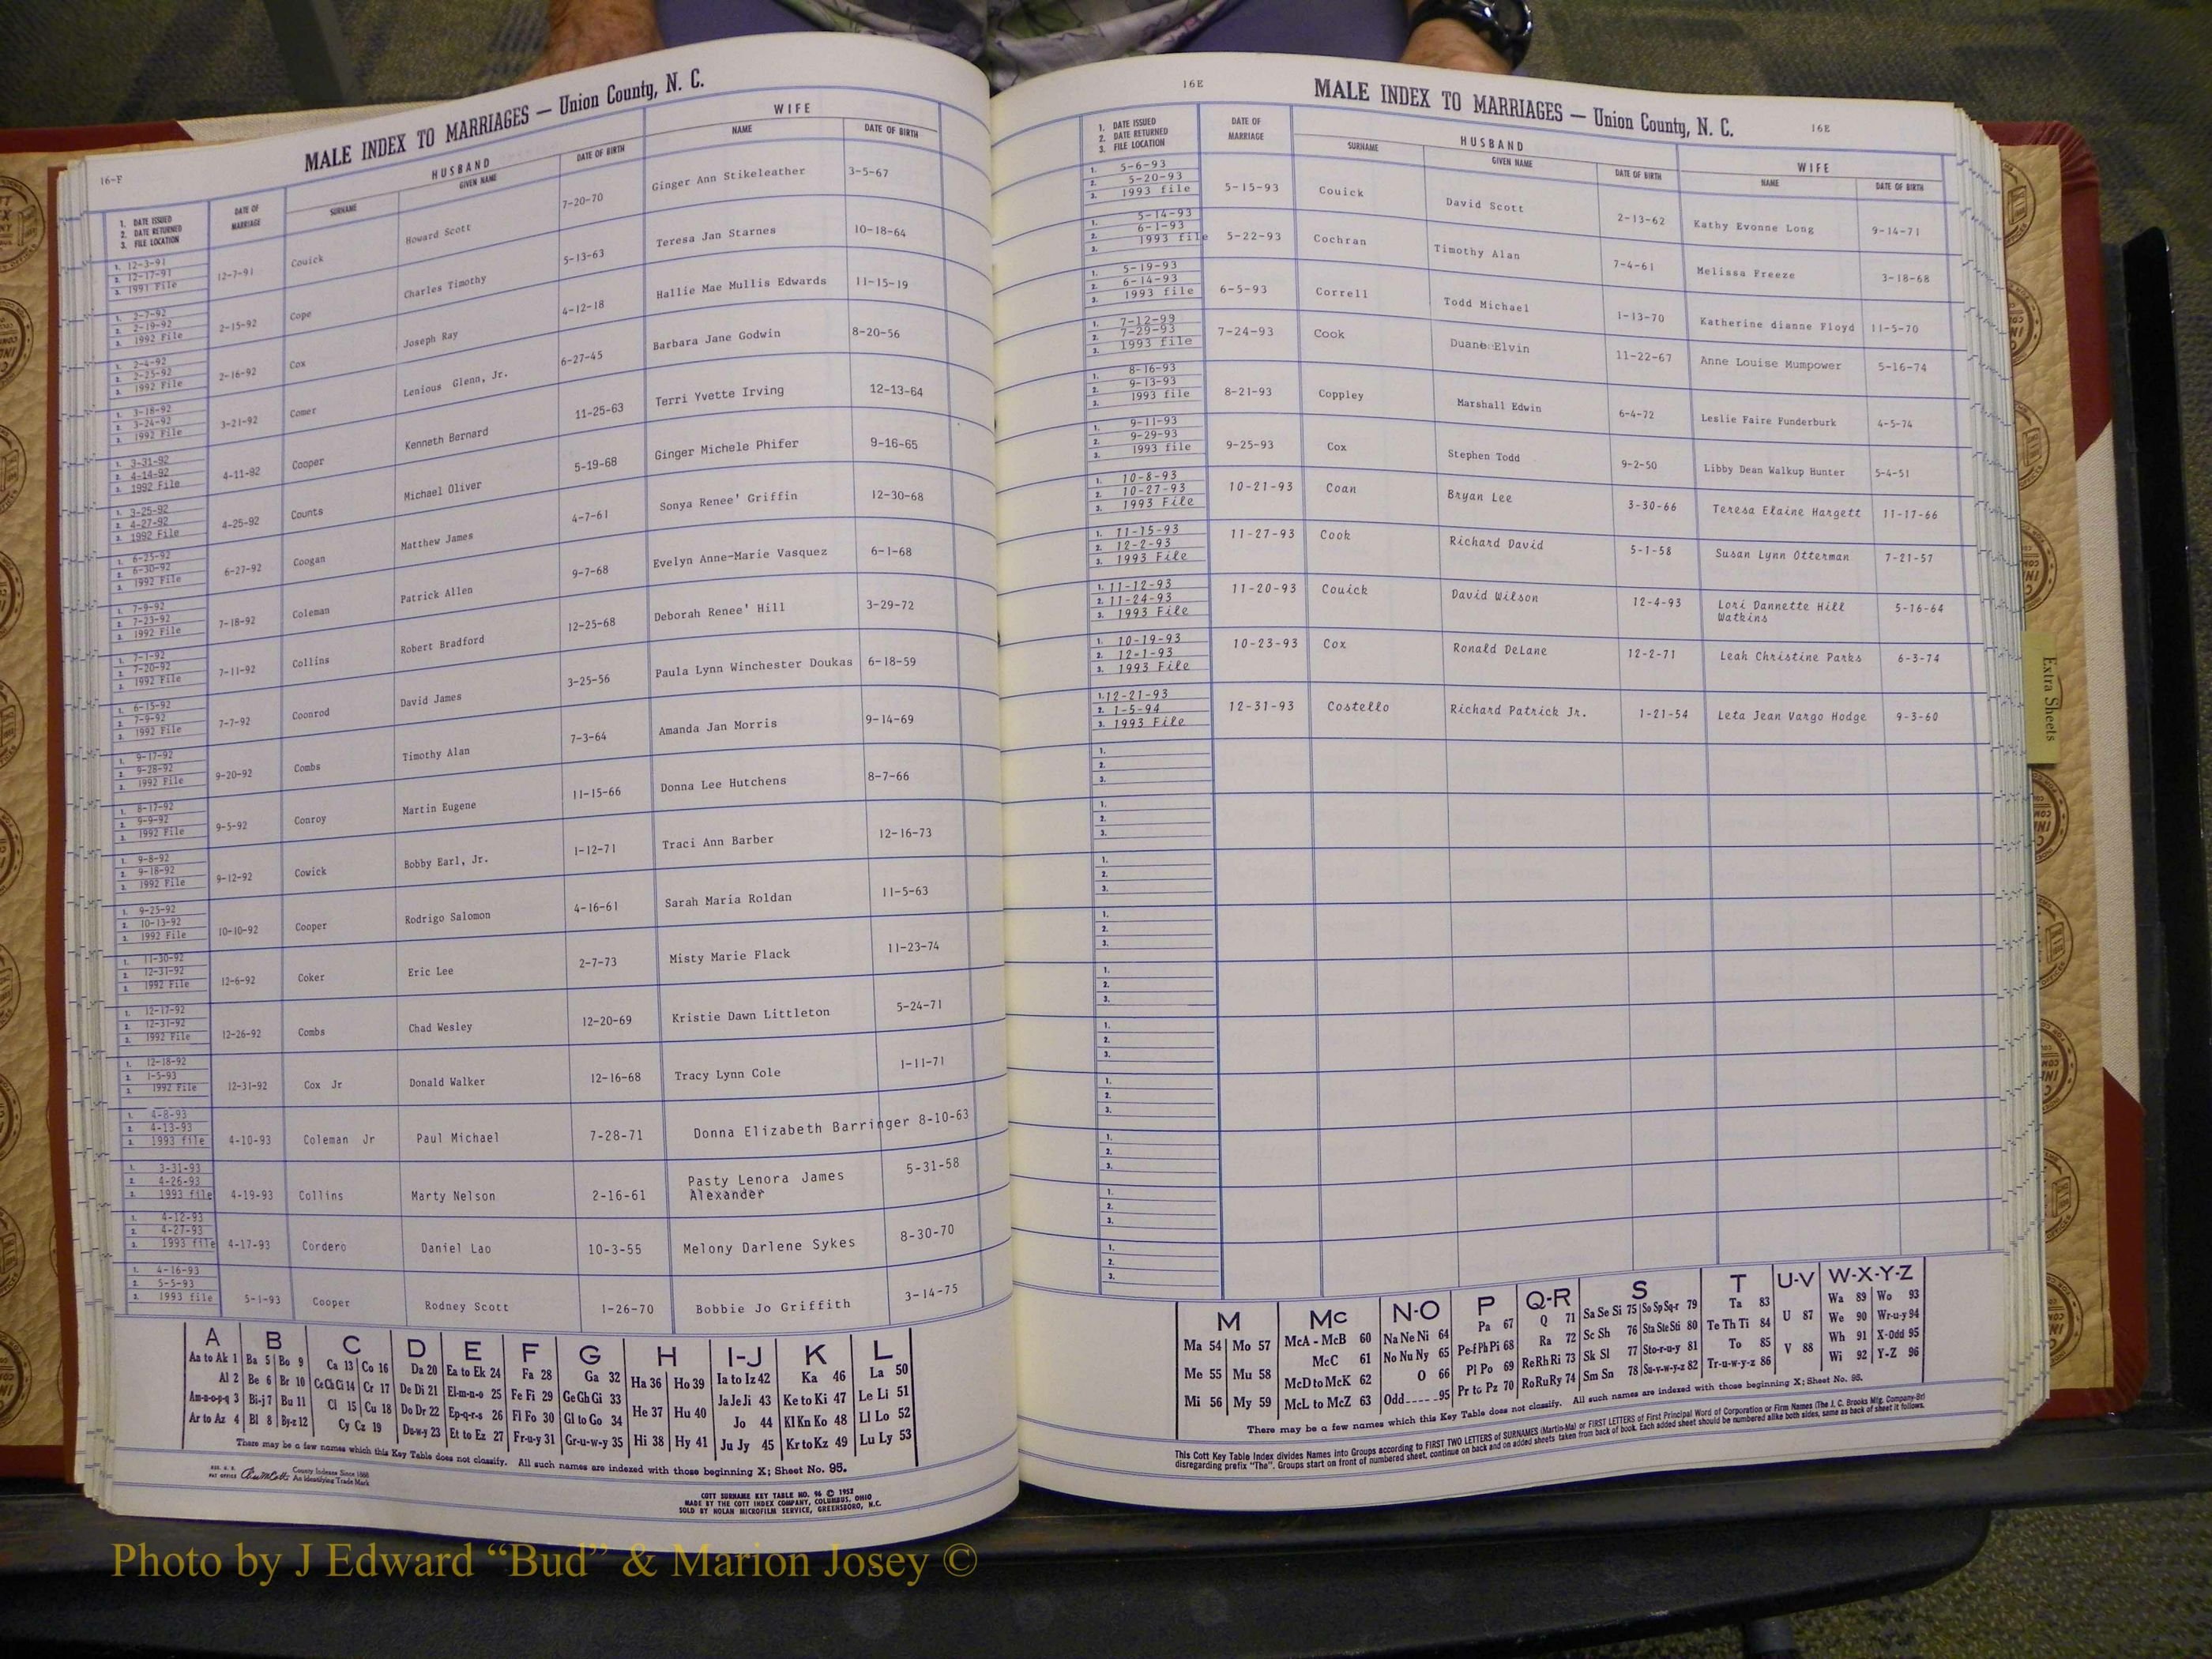 16-F
MALE INDEX TO MARRIAGES — Union County, N. C.
1. DATE ISSUED
2. DATE RETURNED
3. FILE LOCATION
DATE OF MARRIAGE
HUSBAND
SURNAME GIVEN NAME DATE OF BIRTH
WIFE
NAME DATE OF BIRTH
1. 12-3-91
2. 12-17-91
3. 1991 File
12-7-91 Couick Howard Scott 7-20-70 Ginger Ann Stikeleather 3-5-67
1. 2-7-92
2. 2-19-92
3. 1992 File
2-15-92 Cope Charles Timothy 5-13-63 Teresa Jan Starnes 10-18-64
1. 2-4-92
2. 2-25-92
3. 1992 File
2-16-92 Cox Joseph Ray 4-12-18 Hallie Mae Mullis Edwards 11-15-19
1. 3-18-92
2. 3-24-92
3. 1992 File
3-21-92 Comer Lenious Glenn, Jr. 6-27-45 Barbara Jane Godwin 8-20-56
1. 3-31-92
2. 4-14-92
3. 1992 File
4-11-92 Cooper Kenneth Bernard 11-25-63 Terri Yvette Irving 12-13-64
1. 3-25-92
2. 4-27-92
3. 1992 File
4-25-92 Counts Michael Oliver 5-19-68 Ginger Michele Phifer 9-16-65
1. 6-25-92
2. 6-30-92
3. 1992 File
6-27-92 Coogan Matthew James 4-7-61 Sonya Renee' Griffin 12-30-68
1. 7-9-92
2. 7-23-92
3. 1992 File
7-18-92 Coleman Patrick Allen 9-7-68 Evelyn Anne-Marie Vasquez 6-1-68
1. 7-1-92
2. 7-20-92
3. 1992 File
7-11-92 Collins Robert Bradford 12-25-68 Deborah Renee' Hill 3-29-72
1. 6-15-92
2. 7-9-92
3. 1992 File
7-7-92 Coonrod David James 3-25-56 Paula Lynn Winchester Doukas 6-18-59
1. 9-17-92
2. 9-28-92
3. 1992 File
9-20-92 Combs Timothy Alan 7-3-64 Amanda Jan Morris 9-14-69
1. 8-17-92
2. 9-9-92
3. 1992 File
9-5-92 Conroy Martin Eugene 11-15-66 Donna Lee Hutchens 8-7-66
1. 9-8-92
2. 9-18-92
3. 1992 File
9-12-92 Cowick Bobby Earl, Jr. 1-12-71 Traci Ann Barber 12-16-73
1. 9-25-92
2. 10-13-92
3. 1992 File
10-10-92 Cooper Rodrigo Salomon 4-16-61 Sarah Maria Roldan 11-5-63
1. 11-30-92
2. 12-31-92
3. 1992 File
12-6-92 Coker Eric Lee 2-7-73 Misty Marie Flack 11-23-74
1. 12-17-92
2. 12-31-92
3. 1992 File
12-26-92 Combs Chad Wesley 12-20-69 Kristie Dawn Littleton 5-24-71
1. 12-18-92
2. 1-5-93
3. 1992 File
12-31-92 Cox Jr Donald Walker 12-16-68 Tracy Lynn Cole 1-11-71
1. 4-8-93
2. 4-13-93
3. 1993 file
4-10-93 Coleman Jr Paul Michael 7-28-71 Donna Elizabeth Barringer 8-10-63
1. 3-31-93
2. 4-26-93
3. 1993 file
4-19-93 Collins Marty Nelson 2-16-61 Pasty Lenora James 5-31-58
Alexander
1. 4-12-93
2. 4-27-93
3. 1993 file
4-17-93 Cordero Daniel Lao 10-3-55 Melony Darlene Sykes 8-30-70
1. 4-16-93
2. 5-5-93
3. 1993 file
5-1-93 Cooper Rodney Scott 1-26-70 Bobbie Jo Griffith 3-14-75
A B C D E F G H I-J K L
Aa to Ak 1 Ba 5 Bo 9 Ca 13 Co 16 Da 20 Ea to Ek 24 Fa 28 Ga 32 Ha 36 Ho 39 Ia to Iz 42 Ka 46 La 50
Al 2 Be 6 Br 10 Ce Ch Ci 14 Cr 17 De Di 21 El-m-n-o 25 Fe Fi 29 Ge Gh Gi 33 He 37 Hu 40 Ja Je Ji 43 Ke to Ki 47 Le Li 51
Am-n-o-p-q 3 Bi-j 7 Bu 11 Cl 15 Cu 18 Do Dr 22 Ep-q-r-s 26 Fl Fo 30 Gl to Go 34 Hi 38 Hy 41 Jo 44 Kl Kn Ko 48 Ll Lo 52
Ar to Az 4 Bl 8 By-z 12 Cy Cz 19 Du-w-y 23 Et to Ez 27 Fr-u-y 31 Gr-u-w-y 35 Ju Jy 45 Kr to Kz 49 Lu Ly 53
There may be a few names which this Key Table does not classify. All such names are indexed with those beginning X; Sheet No. 95.
County Indexes Since 1888
An Identifying Trade Mark
COTT SURNAME KEY TABLE NO. 96 © 1952
MADE BY THE COTT INDEX COMPANY, COLUMBUS, OHIO
SOLD BY NOLAN MICROFILM SERVICE, GREENSBORO, N.C.
16E
MALE INDEX TO MARRIAGES — Union County, N. C.
16E
1. DATE ISSUED
2. DATE RETURNED
3. FILE LOCATION
DATE OF MARRIAGE
HUSBAND
SURNAME GIVEN NAME DATE OF BIRTH
WIFE
NAME DATE OF BIRTH
1. 5-6-93
2. 5-20-93
3. 1993 file
5-15-93 Couick David Scott 2-13-62 Kathy Evonne Long 9-14-71
1. 5-14-93
2. 6-1-93
3. 1993 file
5-22-93 Cochran Timothy Alan 7-4-61 Melissa Freeze 3-18-68
1. 5-19-93
2. 6-14-93
3. 1993 file
6-5-93 Correll Todd Michael 1-13-70 Katherine dianne Floyd 11-5-70
1. 7-12-99
2. 7-29-93
3. 1993 file
7-24-93 Cook Duane Elvin 11-22-67 Anne Louise Mumpower 5-16-74
1. 8-16-93
2. 9-13-93
3. 1993 file
8-21-93 Coppley Marshall Edwin 6-4-72 Leslie Faire Funderburk 4-5-74
1. 9-11-93
2. 9-29-93
3. 1993 file
9-25-93 Cox Stephen Todd 9-2-50 Libby Dean Walkup Hunter 5-4-51
1. 10-8-93
2. 10-27-93
3. 1993 File
10-21-93 Coan Bryan Lee 3-30-66 Teresa Elaine Hargett 11-17-66
1. 11-15-93
2. 12-2-93
3. 1993 File
11-27-93 Cook Richard David 5-1-58 Susan Lynn Otterman 7-21-57
1. 11-12-93
2. 11-24-93
3. 1993 File
11-20-93 Couick David Wilson 12-4-93 Lori Dannette Hill 5-16-64
Watkins
1. 10-19-93
2. 12-1-93
3. 1993 File
10-23-93 Cox Ronald DeLane 12-2-71 Leah Christine Parks 6-3-74
1. 12-21-93
2. 1-5-94
3. 1993 File
12-31-93 Costello Richard Patrick Jr. 1-21-54 Leta Jean Vargo Hodge 9-3-60
1.
2.
3.
1.
2.
3.
1.
2.
3.
1.
2.
3.
1.
2.
3.
1.
2.
3.
1.
2.
3.
1.
2.
3.
1.
2.
3.
1.
2.
3.
M Mc N-O P Q-R S T U-V W-X-Y-Z
Ma 54 Mo 57 McA - McB 60 Na Ne Ni 64 Pa 67 Q 71 Sa Se Si 75 So Sp Sq-r 79 Ta 83 U 87 Wa 89 Wo 93
Me 55 Mu 58 McC 61 No Nu Ny 65 Pe-f Ph Pi 68 Ra 72 Sc Sh 76 Sta Ste Sti 80 Te Th Ti 84 V 88 We 90 Wr-u-y 94
Mi 56 My 59 McD to McK 62 O 66 Pl Po 69 Re Rh Ri 73 Sk Sl 77 Sto-r-u-y 81 To 85 Wh 91 X-Odd 95
McL to McZ 63 Odd 95 Pr to Pz 70 Ro Ru Ry 74 Sm Sn 78 Su-v-w-y-z 82 Tr-u-w-y-z 86 Wi 92 Y-Z 96
There may be a few names which this Key Table does not classify. All such names are indexed with those beginning X; Sheet No. 95.
This Cott Key Table Index divides Names into Groups according to FIRST TWO LETTERS of SURNAMES (Martin-Ma) or FIRST LETTERS of First Principal Word of Corporation or Firm Names (The J. C. Brooks Mfg. Company-Br)
disregarding prefix "The". Groups start on front of numbered sheet, continue on back and on added sheets taken from back of book. Each added sheet should be numbered alike both sides, same as back of sheet it follows.
Extra Sheets
Photo by J Edward “Bud” & Marion Josey ©